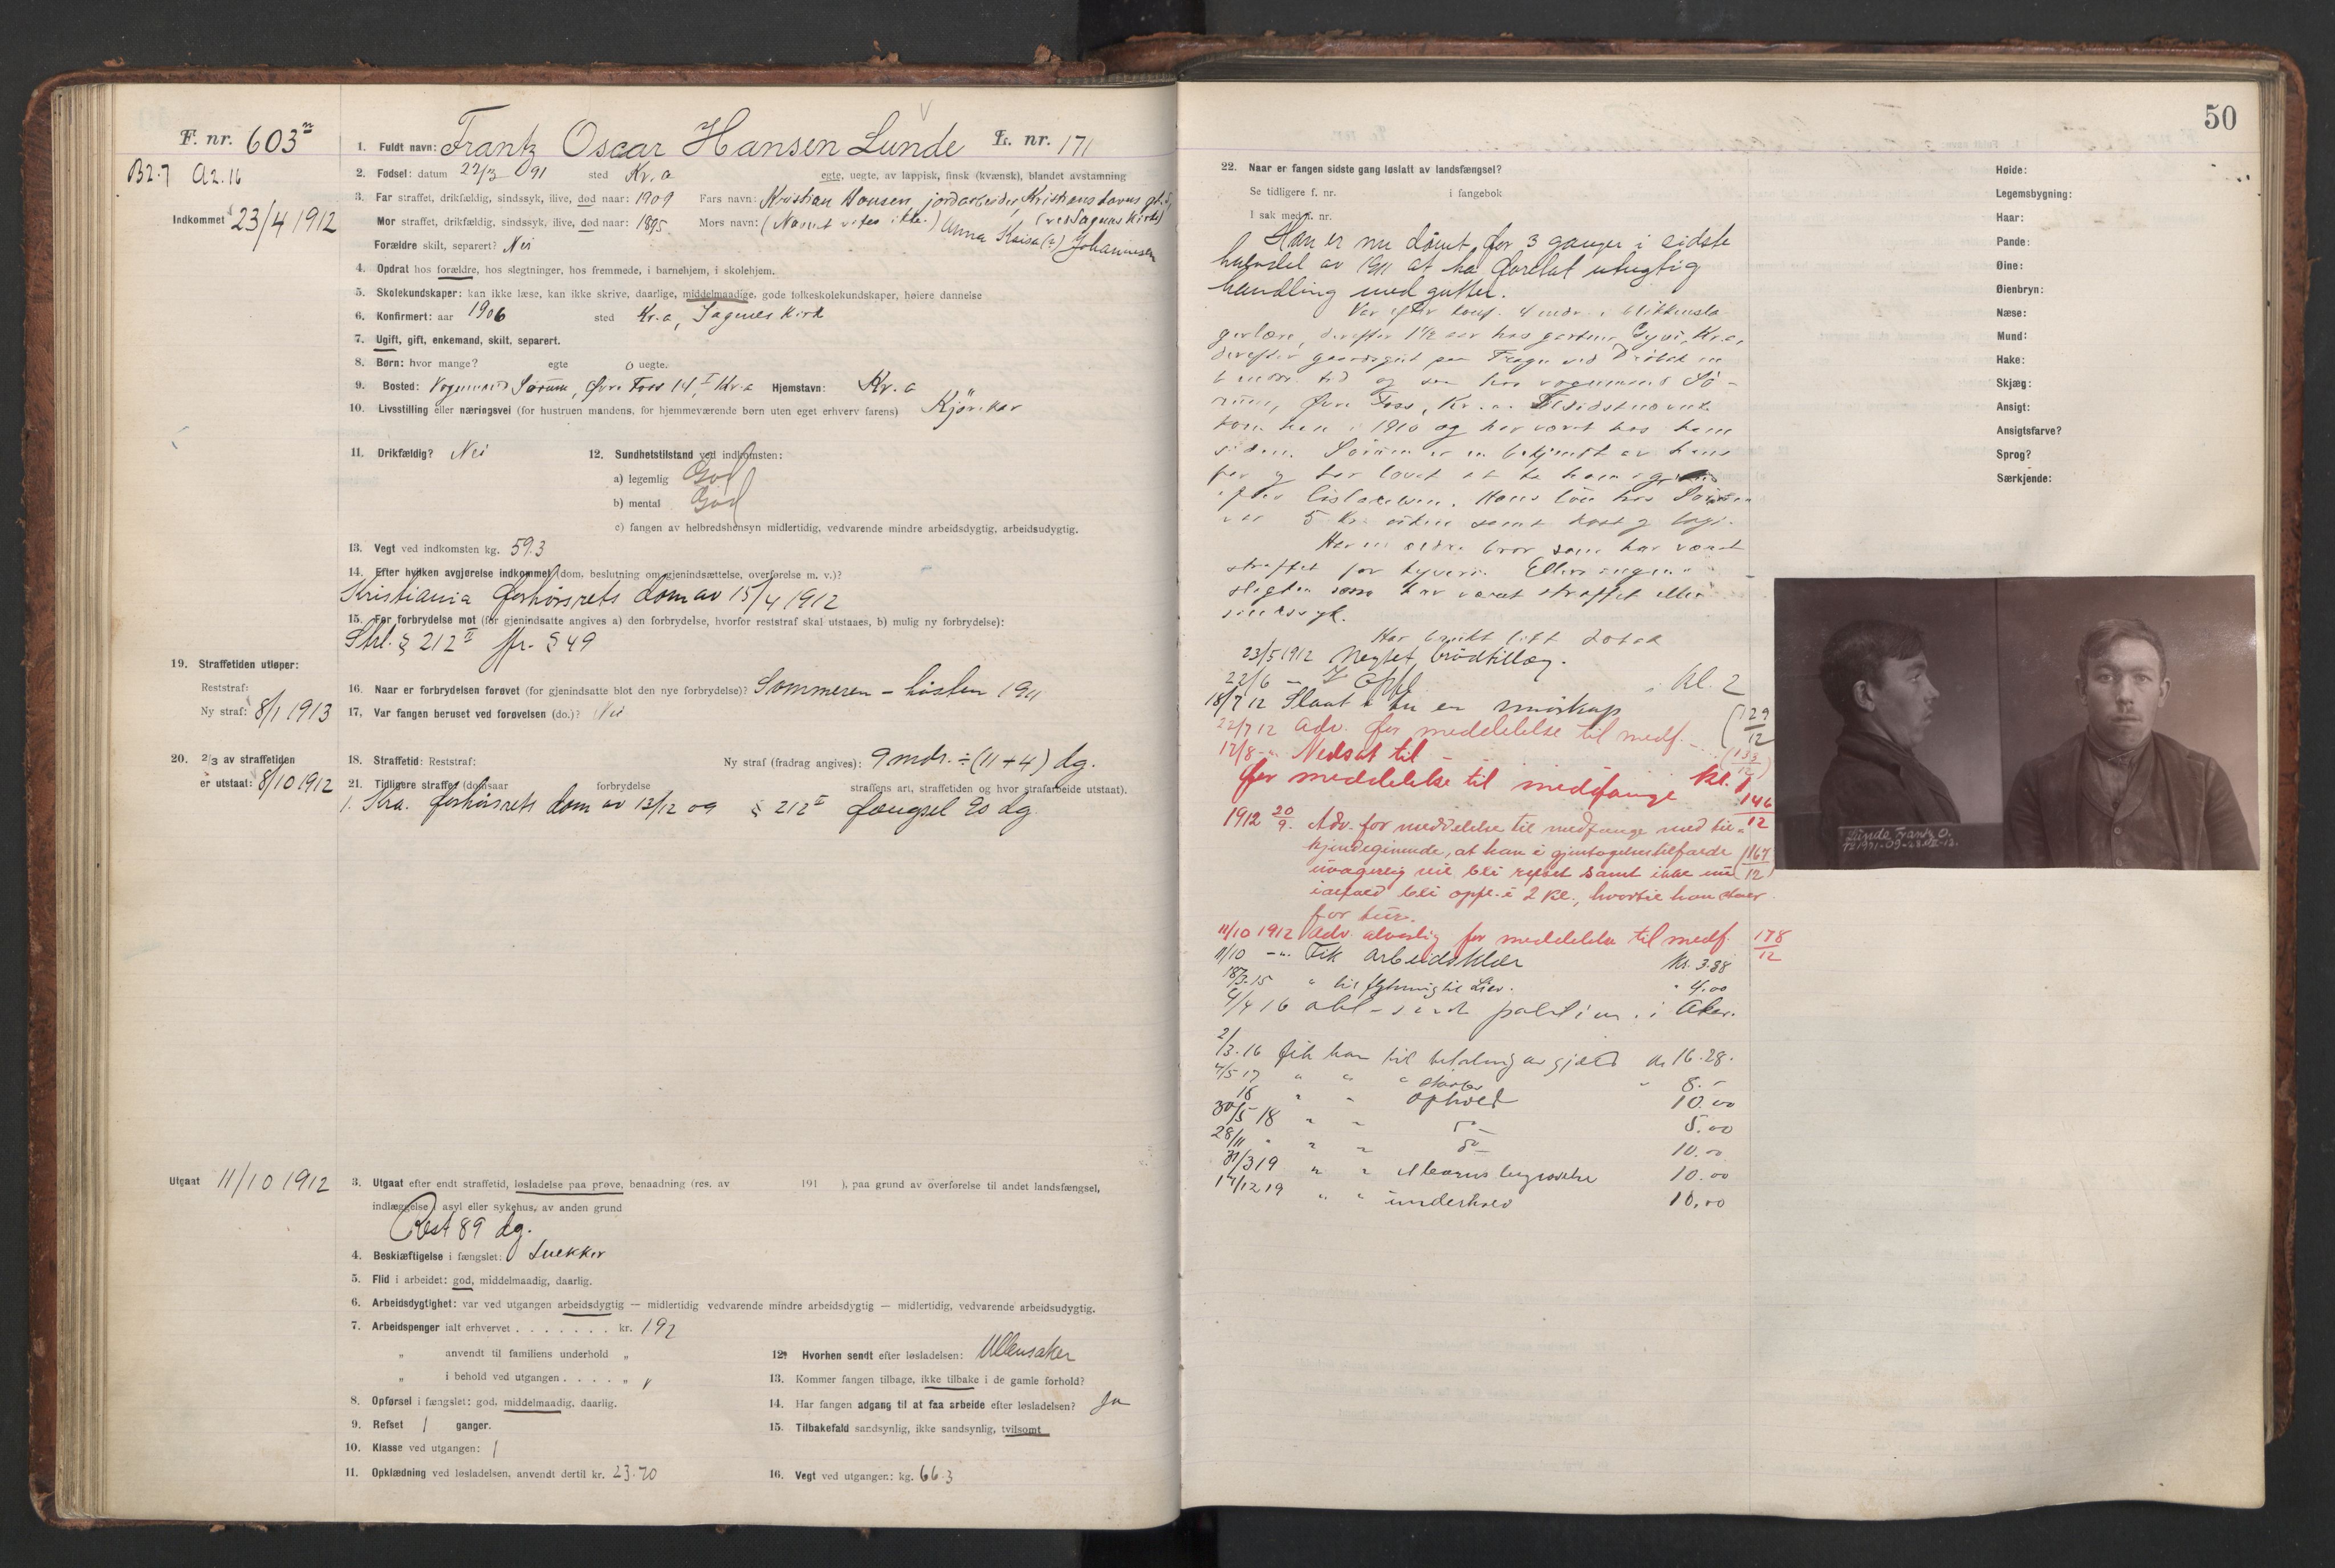 F. nr. 603
B2.7 A2.16
Indkommet 23/4 1912
1. Fuldt navn: Frantz Oscar Hansen Lunde L. nr. 171
2. Fødsel: datum 22/3 91 sted Kr.a egte, uegte, av lappisk, finsk (kvænsk), blandet avstamning
3. Far straffet, drikfældig, sindssyk, ilive, død naar: 1909 Fars navn: Kristian Hansen, jordarbeider, Kristians
Mor straffet, drikfældig, sindssyk, ilive, død naar: 1895 Mors navn: (Navnet vites ikke.) (ved Sagenes Kirke)
Anna Kaisa (?) Johannesen
Forældre skilt, separert? Nei
4. Opdrat hos forældre, hos slegtninger, hos fremmede, i barnehjem, i skolehjem.
5. Skolekundskaper: kan ikke læse, kan ikke skrive, daarlige, middelmaadige, gode folkeskolekundskaper, høiere dannelse
6. Konfirmert: aar 1906 sted Kr.a, Sagenes Kirke
7. Ugift, gift, enkemand, skilt, separert.
8. Børn: hvor mange? egte 0 uegte.
9. Bosted: Vognmand Sørum, Øvre Foss 14 I, Kr.a Hjemstavn: Kr.a
10. Livsstilling eller næringsvei (for hustruen mandens, for hjemmeværende børn uten eget erhverv farens) Kjørekar
11. Drikfældig? Nei 12. Sundhetstilstand ved indkomsten:
a) legemlig God
b) mental God
c) fangen av helbredshensyn midlertidig, vedvarende mindre arbeidsdygtig, arbeidsudygtig.
13. Vegt ved indkomsten kg. 59.3
14. Efter hvilken avgjørelse indkommet (dom, beslutning om gjenindsættelse, overførelse m. v.)?
Kristiania forhørsrets dom av 15/4 1912
15. For forbrydelse mot (for gjenindsatte angives a) den forbrydelse, hvorfor reststraf skal utstaaes, b) mulig ny forbrydelse):
Strl. § 212 II jfr. § 49
19. Straffetiden utløper:
Reststraf:
Ny straf: 8/1 1913
16. Naar er forbrydelsen forøvet (for gjenindsatte blot den nye forbrydelse)? Sommeren - høsten 1911
17. Var fangen beruset ved forøvelsen (do.)? Nei
20. 2/3 av straffetiden
er utstaat: 8/10 1912
18. Straffetid: Reststraf: Ny straf (fradrag angives): 9 mdr. ÷ (11 + 4) dg.
21. Tidligere straffet (domsaar forbrydelse straffens art, straffetiden og hvor strafarbeide utstaat).
1. Kra. forhørsrets dom av 13/12 09 § 212 II fængsel 90 dg.
Utgaat 11/10 1912
3. Utgaat efter endt straffetid, løsladelse paa prøve, benaadning (res. av 191 ), paa grund av overførelse til andet landsfængsel,
indlæggelse i asyl eller sykehus, av anden grund
Rest 89 dg.
4. Beskiæftigelse i fængslet: Snekker
5. Flid i arbeidet: god, middelmaadig, daarlig.
6. Arbeidsdygtighet: var ved utgangen arbeidsdygtig — midlertidig vedvarende mindre arbeidsdygtig — midlertidig, vedvarende arbeidsudygtig.
7. Arbeidspenger ialt erhvervet . . . . . . . kr. 192
„ anvendt til familiens underhold „
„ i behold ved utgangen . . . . . „
8. Opførsel i fængslet: god, middelmaadig, daarlig.
9. Refset 1 ganger.
10. Klasse ved utgangen: 1
11. Opklædning ved løsladelsen, anvendt dertil kr. 23.70
12. Hvorhen sendt efter løsladelsen: Ullensaker
13. Kommer fangen tilbage, ikke tilbake i de gamle forhold?
14. Har fangen adgang til at faa arbeide efter løsladelsen? Ja
15. Tilbakefald sandsynlig, ikke sandsynlig, tvilsomt
16. Vegt ved utgangen: kg. 66.3
50
22. Naar er fangen sidste gang løslatt av landsfængsel?
Se tidligere f. nr. i fangebok
I sak med f. nr.
Han er nu dømt for 3 ganger i sidste
halvdel av 1911 at ha foretat utugtig
handling med gutter.
Var efter konf. 4 mdr. i blikkensla-
gerlære, derefter 1 1/2 aar hos gartner Gyvi, Kr.a,
derefter gaardsgut paa Frogn ved Drøbak en
6 mdrs tid og saa hos vognmand Sø-
rum, Øvre Foss, Kr.a. Til sidstnævnte
kom han i 1910 og har været hos ham
siden. Sørum er en bekjendt av hans
far og har lovet at ta ham igjen
efter løslatelsen. Hans løn hos Sørum
var 5 Kr. uken samt kost og logi.
Har en ældre bror som har været
straffet for tyveri. Ellers ingen i
slegten som har været straffet eller
sindssyk.
Har brukt litt tobak
23/5 1912 Negtet brødtillæg.
22/6 — Opfl. i kl. 2
18/7 12 Slaat i tu en smørkop (129/12)
22/7 12 Adv. for meddelelse til medf. — (133/12)
17/8 — Nedsat til kl. 1
for meddelelse til medfange 146/12
1912 20/9. Adv. for meddelelse til medfange med til-
kjendegivende, at han i gjentagelsestilfælde (167/12)
uvægerlig vil bli refset samt ikke nu
ialfald bli opfl. i 2 kl., hvortil han staar
for tur.
11/10 1912 Adv. alvorlig for meddelelse til medf. 178/12
11/10 —"— Fik arbeidsklær kr. 3.38
18/3-15 " til flytning til Lier. " 4.00
4/4 16 i Aker.
2/3-16 fik han til betaling av gjæld kr 16.28.
4/5 17 " " " 8.-
18 " " ophold 10.00
30/5 18 " " do 5.00
28/11 " " " do 10.00
31/3 19 " " begravelse 10.00
17/12 19 " " underhold 10,00
Høide:
Legemsbygning:
Haar:
Pande:
Øine:
Øienbryn:
Næse:
Mund:
Hake:
Skjæg:
Ansigt:
Ansigtsfarve?
Sprog?
Særkjende:
Lunde, Frantz O.